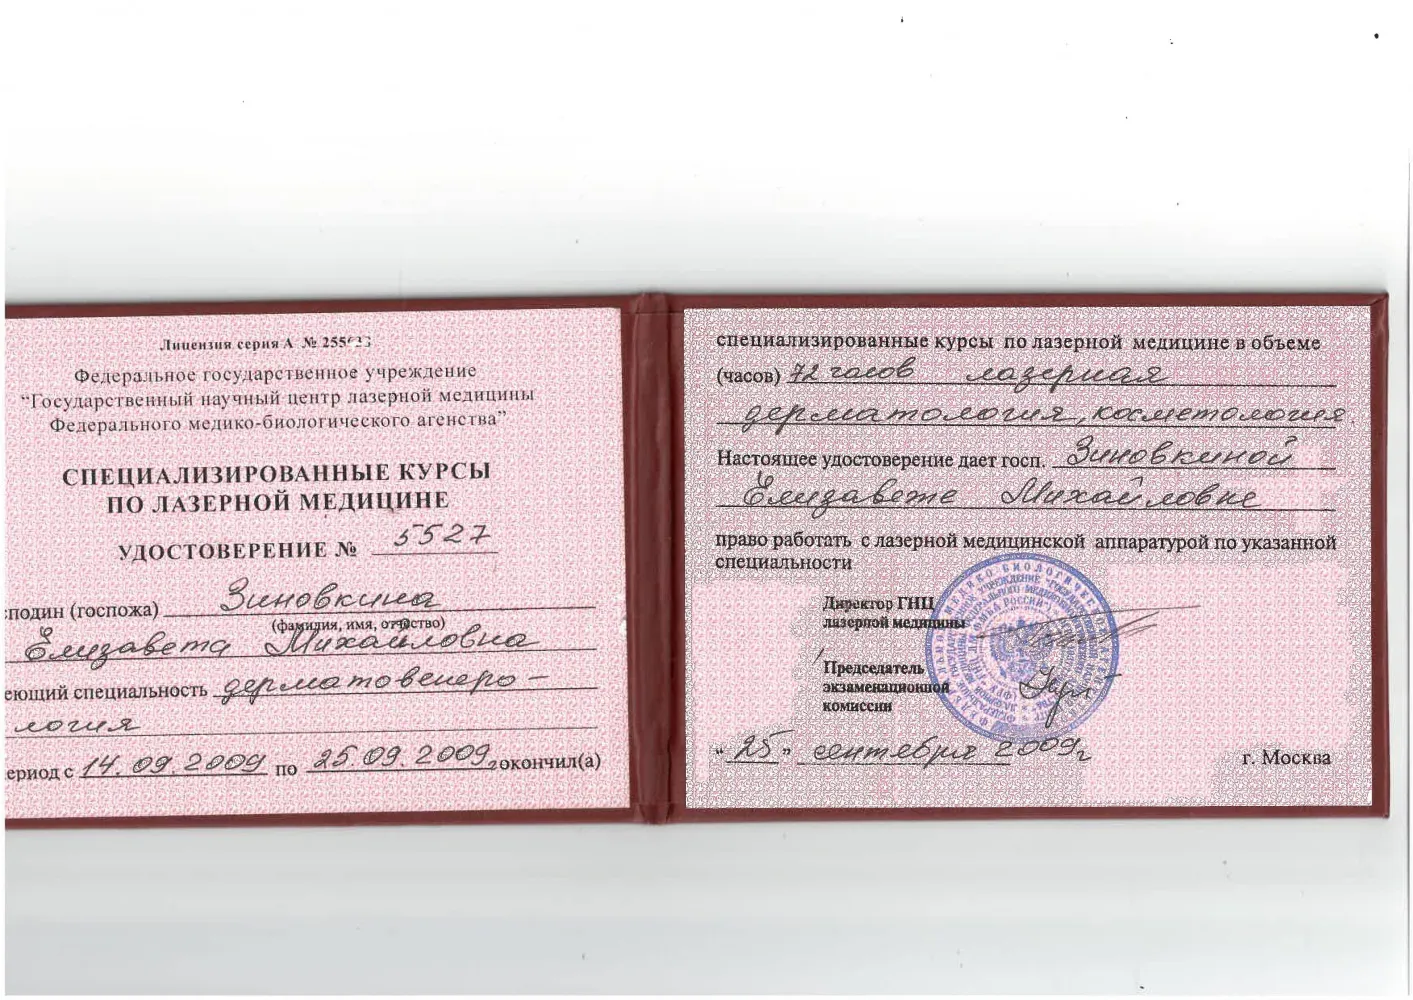 Лицензия серия А № 255
Федеральное государственное учреждение
“Государственный научный центр лазерной медицины
Федерального медико-биологического агенства”
СПЕЦИАЛИЗИРОВАННЫЕ КУРСЫ
ПО ЛАЗЕРНОЙ МЕДИЦИНЕ
УДОСТОВЕРЕНИЕ № 5527
сподин (госпожа) Зиновкина
(фамилия, имя, отчество)
Елизавета Михайловна
еющий специальность дерматовенеро-
логия
ериод с 14.09.2009 по 25.09.2009г окончил(а)
специализированные курсы по лазерной медицине в объеме
(часов) 72 часов лазерная
дерматология, косметология
Настоящее удостоверение дает госп. Зиновкиной
Елизавете Михайловне
право работать с лазерной медицинской аппаратурой по указанной
специальности
Директор ГНЦ
лазерной медицины
Председатель
экзаменационной
комиссии
“25” сентября 2009г
г. Москва